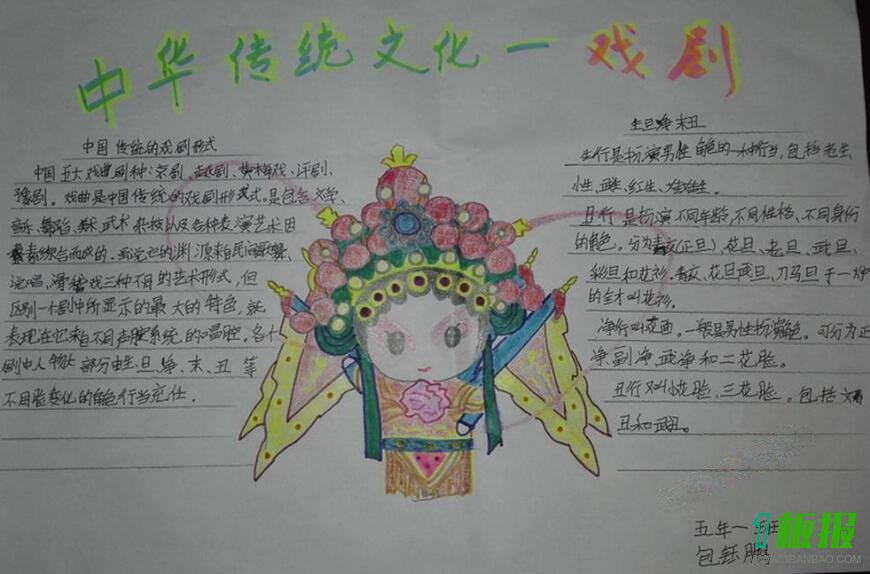 中华传统文化一戏剧
中国传统的戏剧形式
中国五大戏曲剧种：京剧、越剧、黄梅戏、评剧、
豫剧。戏曲是中国传统的戏剧形式。是包含文学、
音乐、舞蹈、美术、武术、杂技以及各种表演艺术因
素综合而成的。它的渊源来自民间歌舞、
说唱、滑稽戏三种不同的艺术形式，但
区别一个剧中所显示的最大的特色，就
表现在它来自不同声腔系统的唱腔。各个
剧中人物大部分由生、旦、净、末、丑等
不同脸变化的角色行当充任。
生旦净末丑
生行是扮演男性角色的一种行当，包括老生
小生、武生、红生、娃娃生。
旦行是扮演不同年龄，不同性格、不同身份
的角色。分为青衣（正旦）、花旦、老旦、武旦、
彩旦和花衫。青衣、花旦武旦、刀马旦于一炉
的全才叫花衫。
净行叫花面。一般是男性扮演角色。可分为正
净、副净、武净和二花脸。
丑行叫小花脸、三花脸。包括文
丑和武丑。
五年一班
包钰鹏
1板报
WWW.1BANBAO.COM